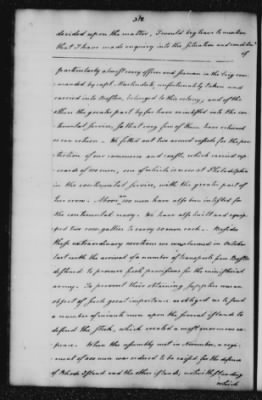 decided upon the matter, I would beg leave to mention
that I have made enquiry into the situation and condit.n
of
particularly almost every officer and seaman in the brig com-
manded by capt. Martindale, unfortunately taken and
carried into Boston, belonged to this colony, and of the
others the greater part by far have reinlisted into the con-
tinental service, so that very few of them have returned
or can return. We fitted out two armed vessels for the pro-
tection of our commerce and coasts, which carried up-
wards of 100 men, one of which is now at Philadelphia
in the continental service, with the greater part of
her crew. Above 100 men have also been inlisted for
the continental navy. We have also built and equip-
ped two row-gallies to carry 50 men each. Besides
these extraordinary exertions we were alarmed in October
last with the arrival of a number of transports from Boston
destined to procure fresh provisions for the ministerial
army. To prevent their obtaining supplies was an
object of such great importance as obliged us to post
a number of minute men upon the several islands to
defend the stock, which created a most enormous ex-
pence. When the assembly met in November, a regi-
ment of 500 men was ordered to be raised for the defence
of Rhode Island and the other islands; notwithstanding
which